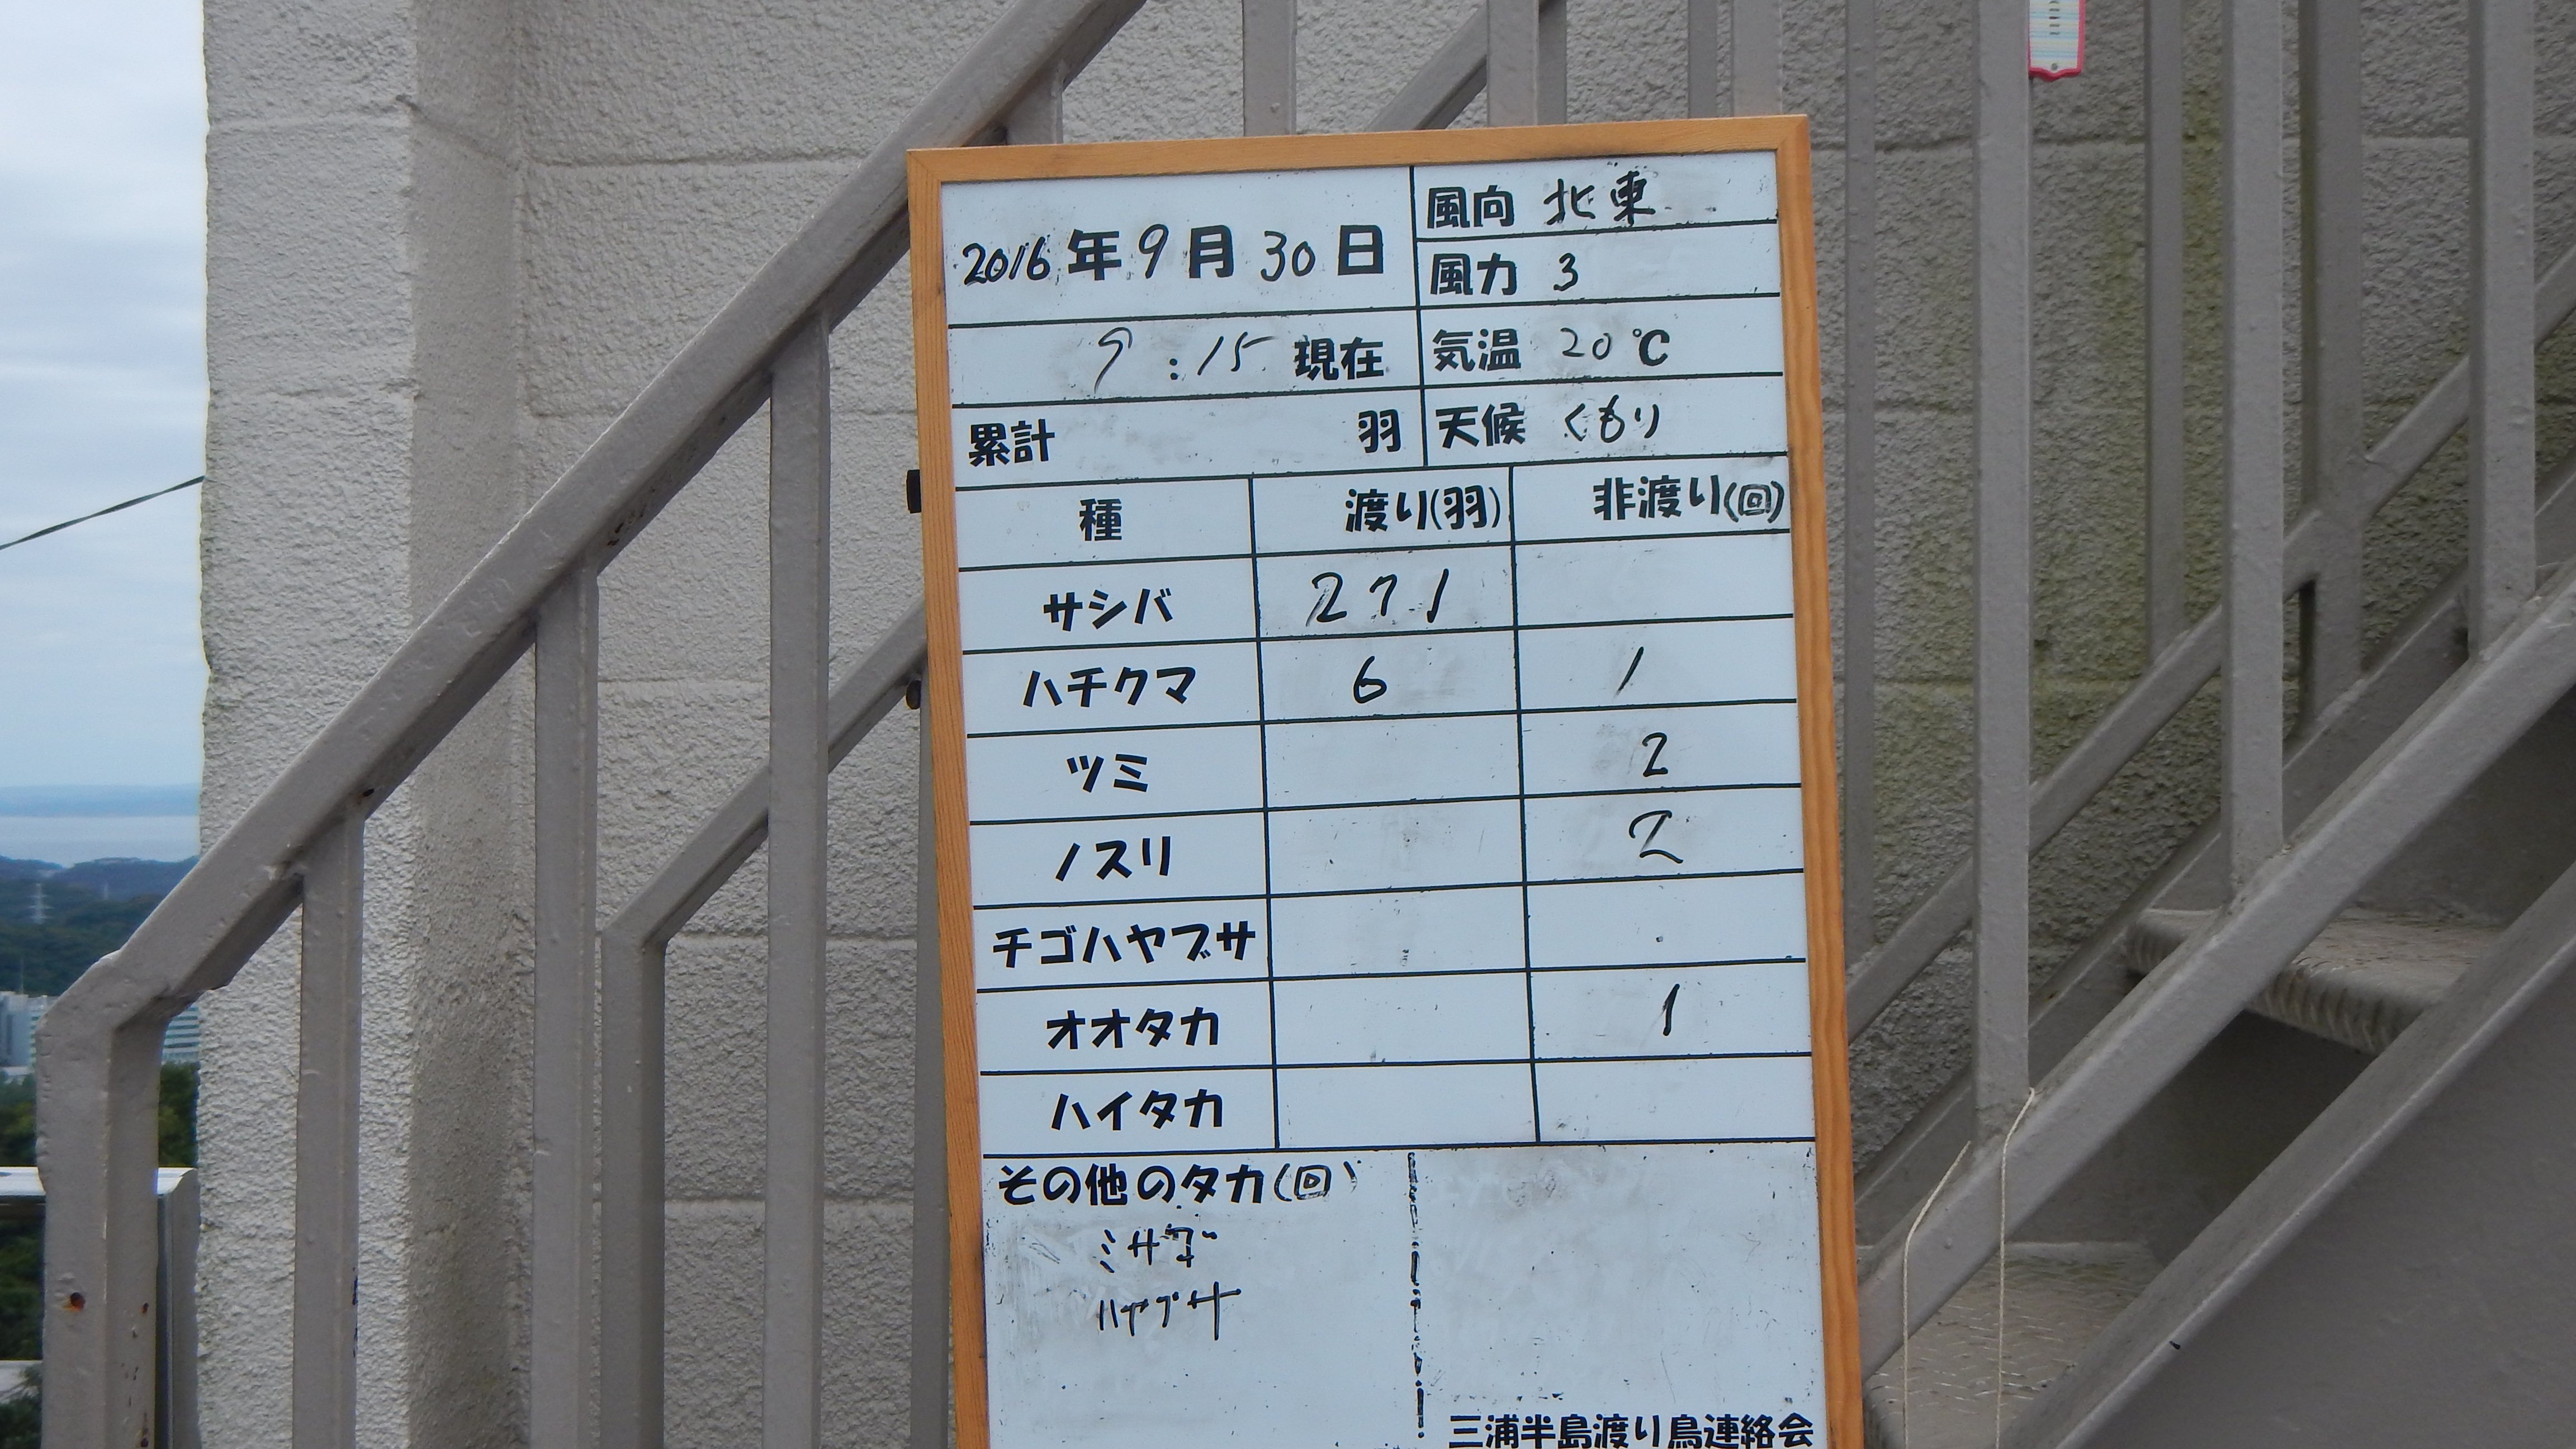 2016年9月30日
風向 北東
風力 3
9:15 現在
気温 20℃
累計 羽
天候 くもり
種 渡り(羽) 非渡り(回)
サシバ 271
ハチクマ 6 1
ツミ 2
ノスリ 2
チゴハヤブサ
オオタカ 1
ハイタカ
その他のタカ(回)
ミサゴ
ハヤブサ
三浦半島渡り鳥連絡会